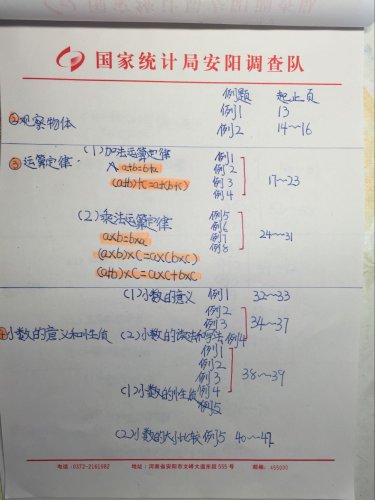 国家统计局安阳调查队
例题 起止页
例1 13
②观察物体 例2 14~16
(1)加法运算定律 例1
③运算定律· a+b=b+a 例2
(a+b)+c=a+(b+c) 例3 17~23
例4
(2)乘法运算定律 例5
例6
a×b=b×a 例7 24~31
(a×b)×c=a×(b×c) 例8
(a+b)×c=a×c+b×c
(1)小数的意义 例1 32~33
例2
例3 34~37
小数的意义和性质 (2)小数的读法和写法 例4
例1
例2
例3 38~39
(1)小数的性质 例4
例5
(2)小数的大小比较 例5 40~
电话:0372-2161982 地址:河南省安阳市文峰大道东段555号 邮编:455000